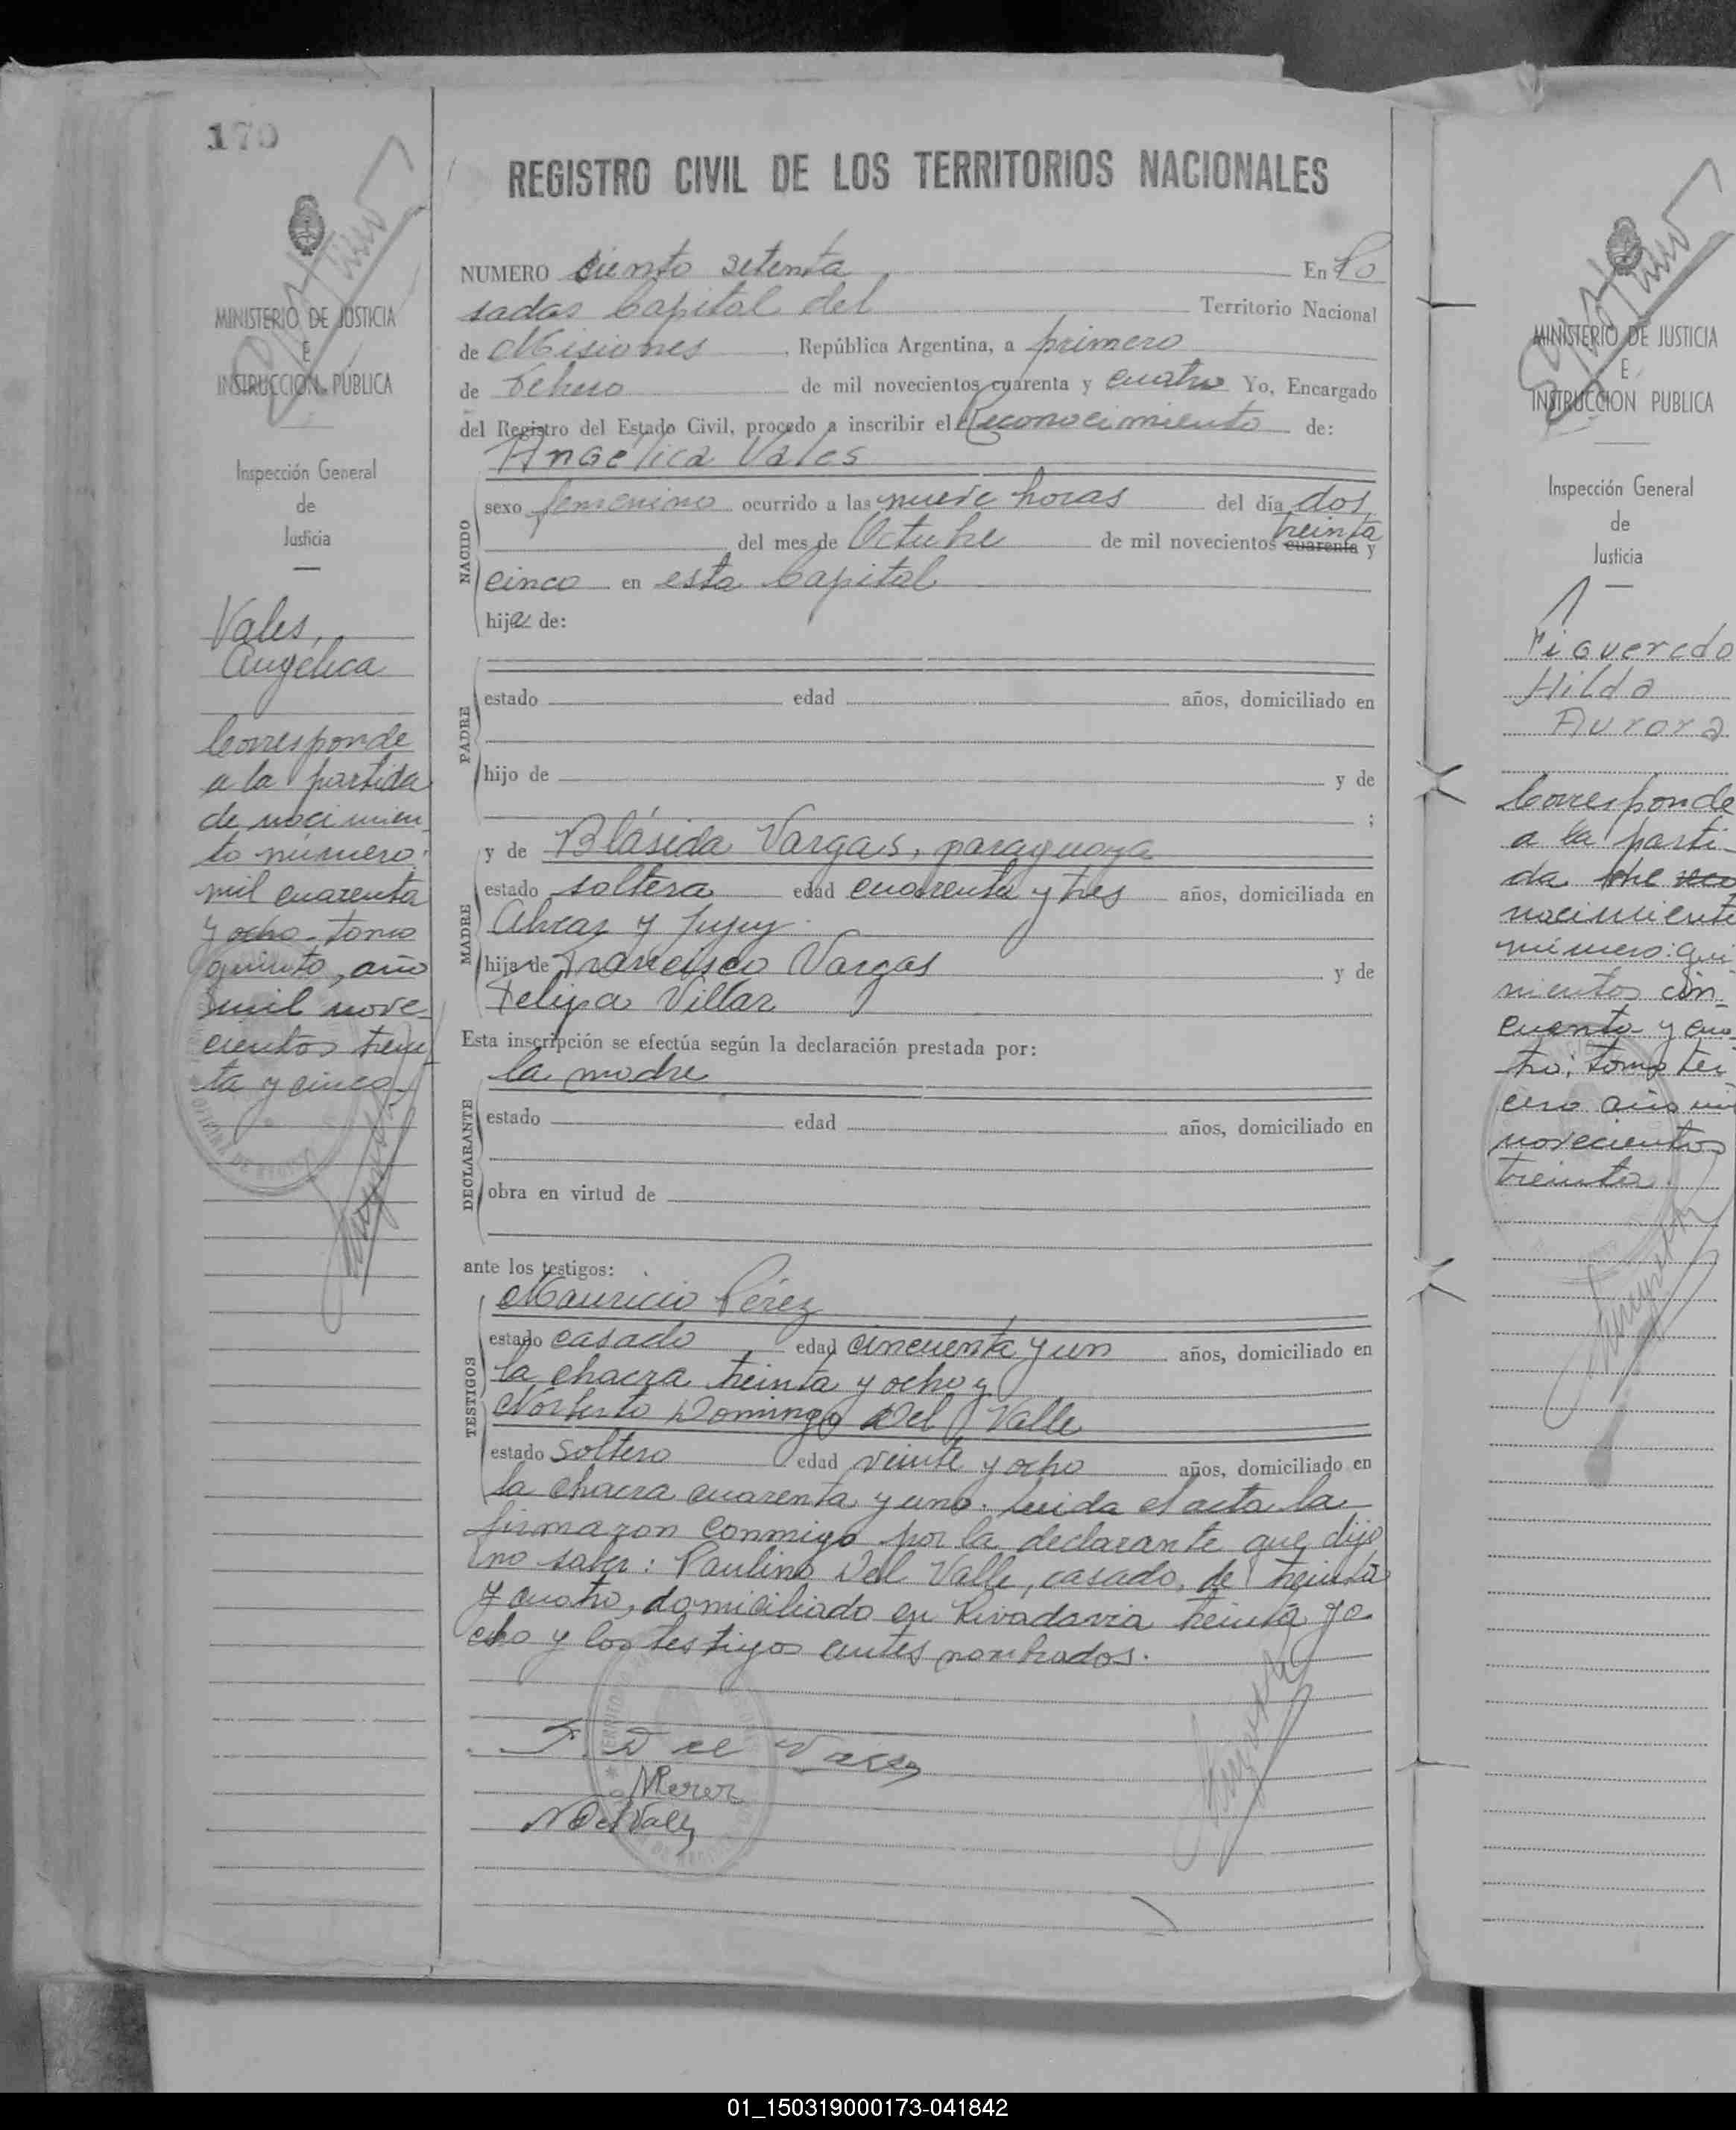 170
MINISTERIO DE JUSTICIA
E
INSTRUCCION PÚBLICA
Inspección General
de
Justicia
Vales,
Angélica
Corresponde
a la partida
de nacimien_
to número:
mil cuarenta
y ocho tomo
quinto, año
mil nove_
cientos trein
ta y cinco
REGISTRO CIVIL DE LOS TERRITORIOS NACIONALES
NUMERO ciento setenta En Po
sadas Capital del Territorio Nacional
de Misiones, República Argentina, a primero
de Febrero de mil novecientos cuarenta y cuatro Yo, Encargado
del Registro del Estado Civil, procedo a inscribir el Reconocimiento de:
Angelica Vales
NACIDO
sexo femenino ocurrido a las nueve horas del día dos
treinta
del mes de Octubre de mil novecientos cuarenta y
cinco en esta Capital
hija de:
PADRE
estado edad años, domiciliado en
hijo de y de
;
y de Blásida Vargas, paraguaya
MADRE
estado soltera edad cuarenta y tres años, domiciliada en
Alvear y Jujuy
hija de Francisco Vargas y de
Felipa Villar
Esta inscripción se efectúa según la declaración prestada por:
la madre
DECLARANTE
estado edad años, domiciliado en
obra en virtud de
ante los testigos:
Mauricio Pérez
TESTIGOS
estado casado edad cincuenta y un años, domiciliado en
la chacra treinta y ocho y
Norberto Domingo Del Valle
estado soltero edad veinte y ocho años, domiciliado en
la chacra cuarenta y uno. Leida el acta la
firmaron conmigo por la declarante que dijo
no saber: Paulino Del Valle, casado, de treinta
y cuatro, domiciliado en Rivadavia treinta y o
cho y los testigos antes nombrados.
MPerez
NDelValle
MINISTERIO DE JUSTICIA
E
INSTRUCCION PUBLICA
Inspección General
de
Justicia
Figueredo
Hilda
Aurora
Corresponde
a la parti_
da de
nacimiento
número: qui
nientos cin_
cuenta y cua
tro, tomo ter
cero año mil
novecientos
treinta.
01_150319000173-041842